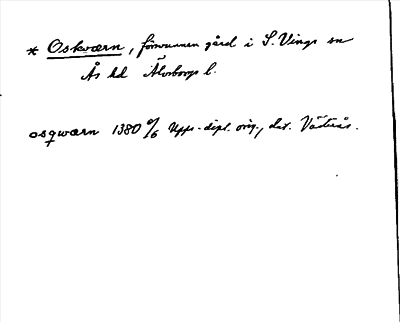 * Oskværn, försvunnen gård i S. Vings sn
Ås hd Älvsborgs l.
osqwærn 1380 6/6 Upps. dipl. orig., dat. Västerås.